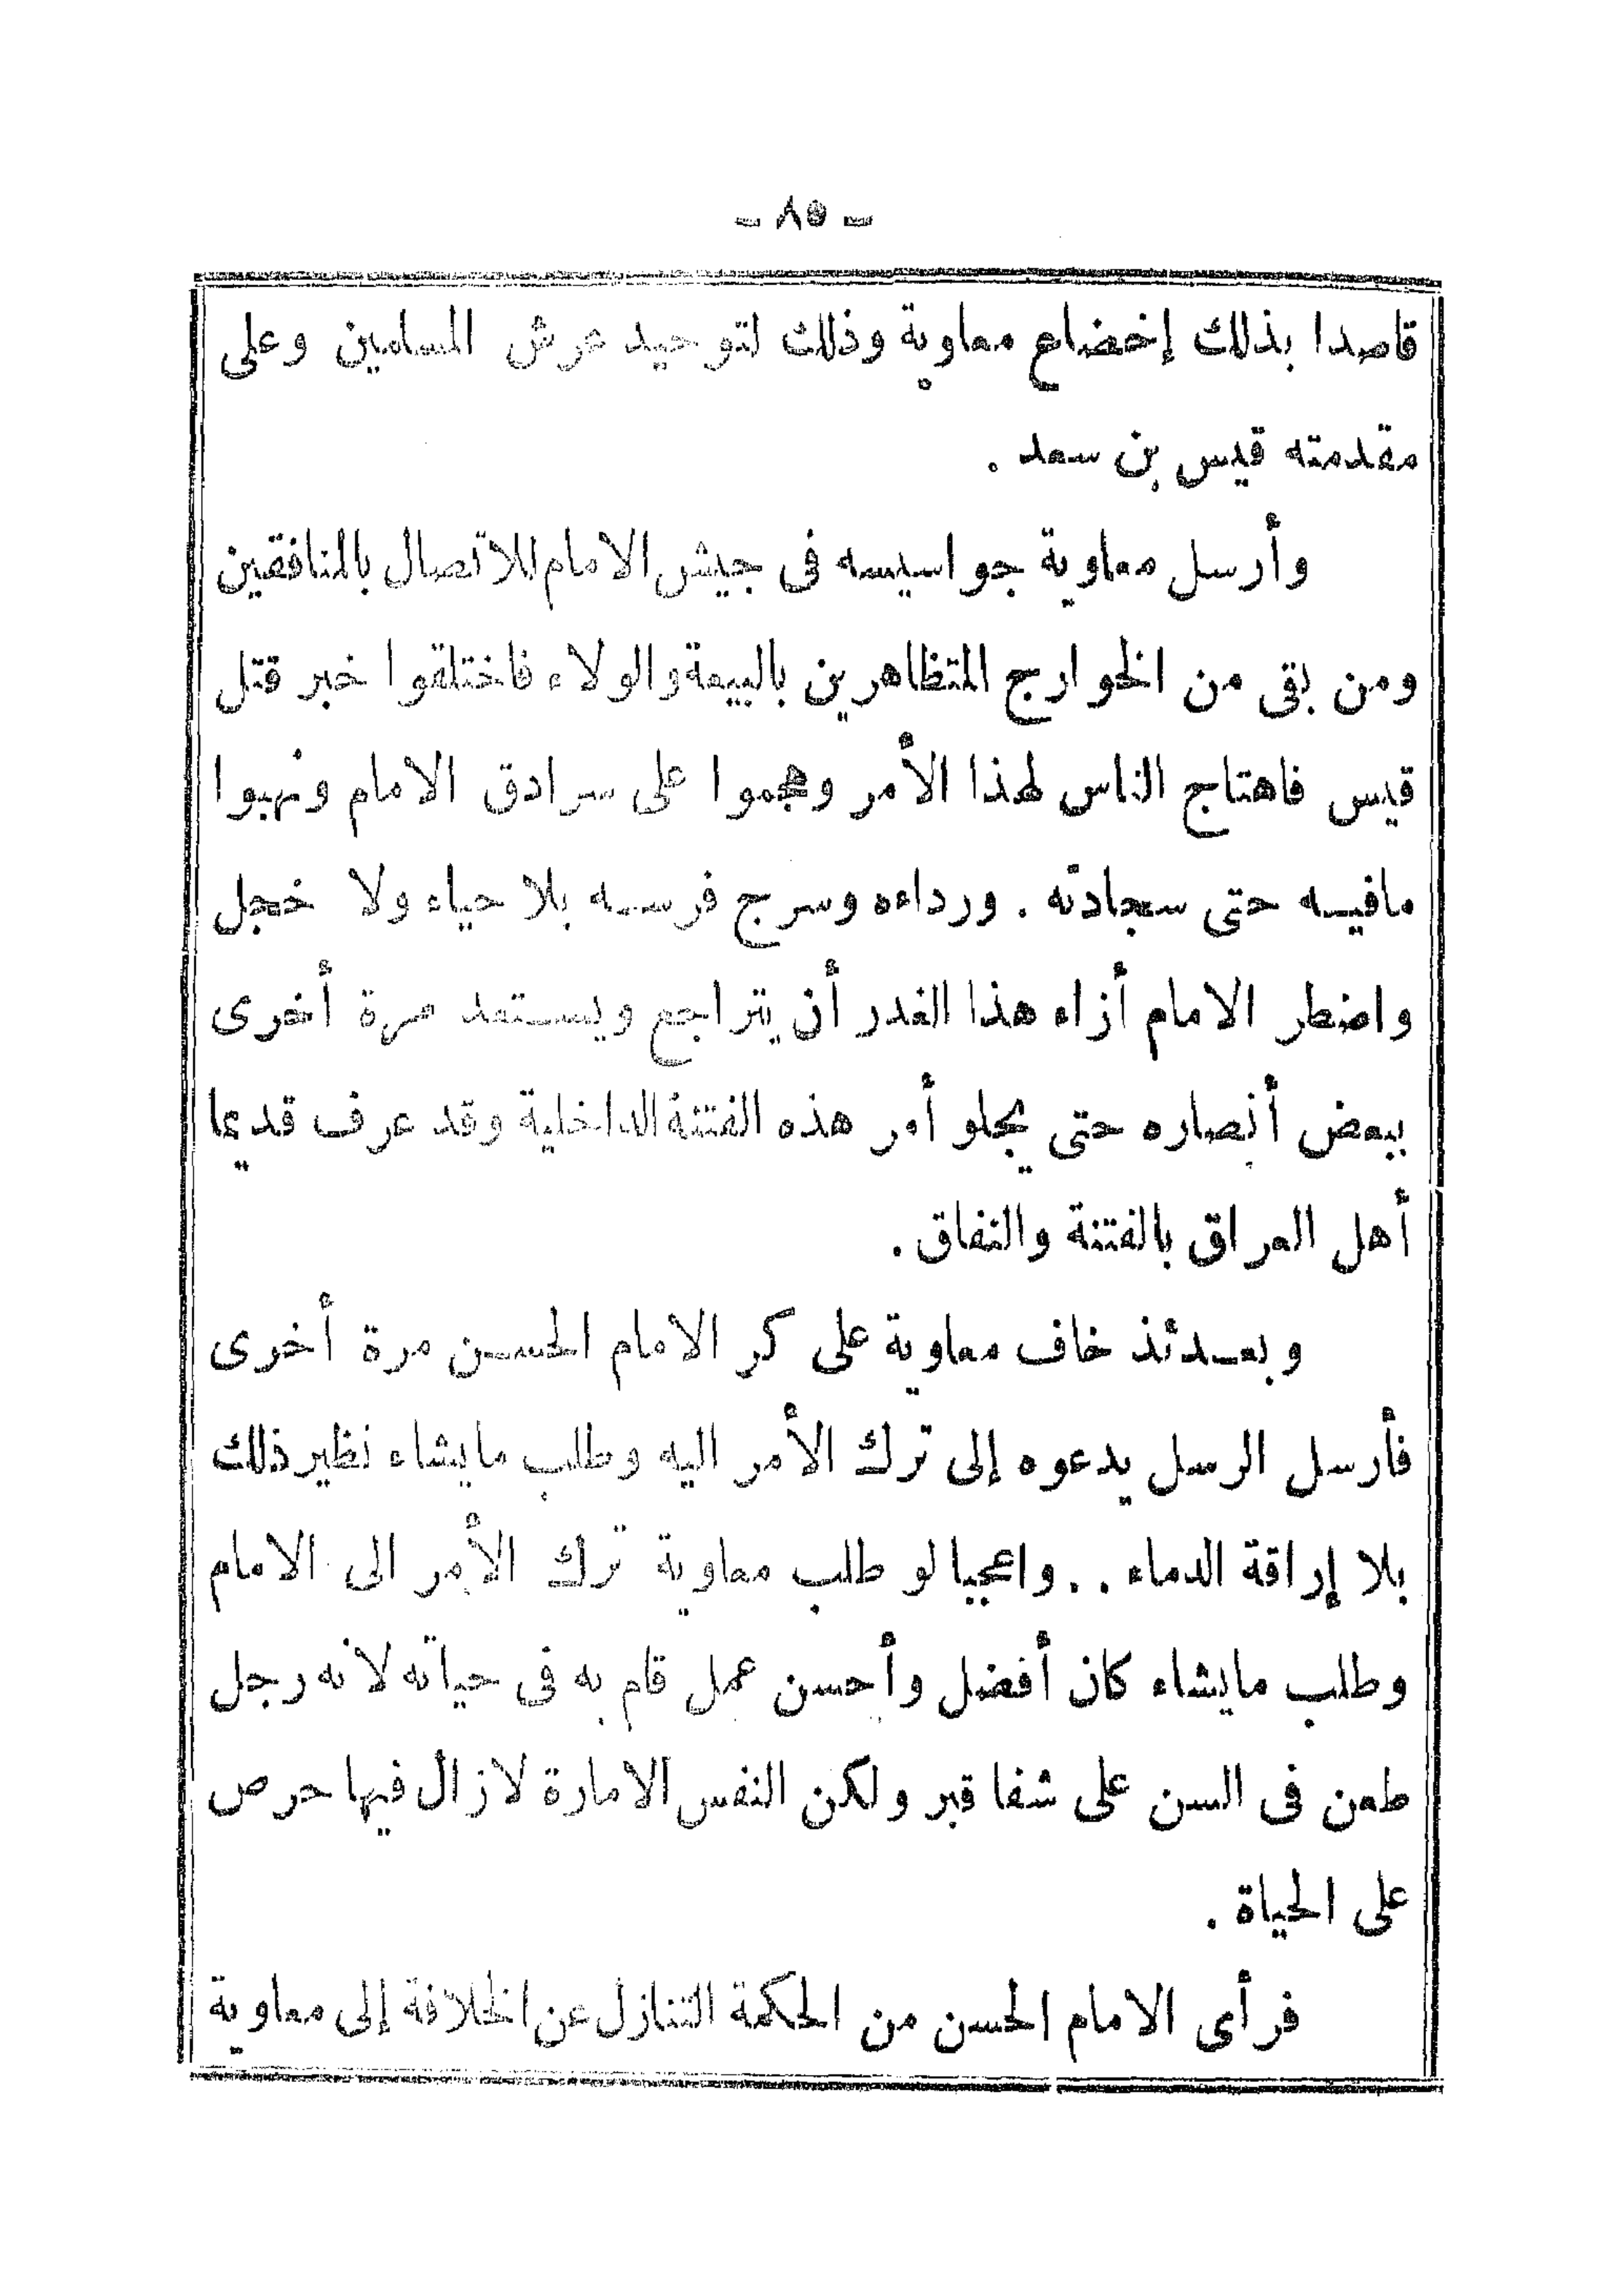 - ٨٥ -
قاصدا بذلك إخضاع معاوية وذلك لتوحيد عرش المسلمين وعلى
مقدمته قيس بن سعد .
وأرسل معاوية جواسيسه فى جيش الامام للاتصال بالمنافقين
ومن بقى من الخوارج المتظاهرين بالبيعة والولاء فاختلقوا خبر قتل
قيس فاهتاج الناس لهذا الأمر وهجموا على سرادق الامام ونهبوا
مافيه حتى سجادته . ورداءه وسرج فرسه بلا حياء ولا خجل
واضطر الامام أزاء هذا الغدر أن يتراجع ويستعد مرة أخرى
ببعض أنصاره حتى يجلو أمر هذه الفتنة الداخلية وقد عرف قديما
أهل العراق بالفتنة والنفاق .
وبعدئذ خاف معاوية على كر الامام الحسن مرة أخرى
فأرسل الرسل يدعوه إلى ترك الأمر اليه وطلب مايشاء نظير ذلك
بلا إراقة الدماء . . واعجبا لو طلب معاوية ترك الأمر الى الامام
وطلب مايشاء كان أفضل وأحسن عمل قام به فى حياته لانه رجل
طعن فى السن على شفا قبر ولكن النفس الامارة لازال فيها حرص
على الحياة .
فرأى الامام الحسن من الحكمة التنازل عن الخلافة إلى معاوية